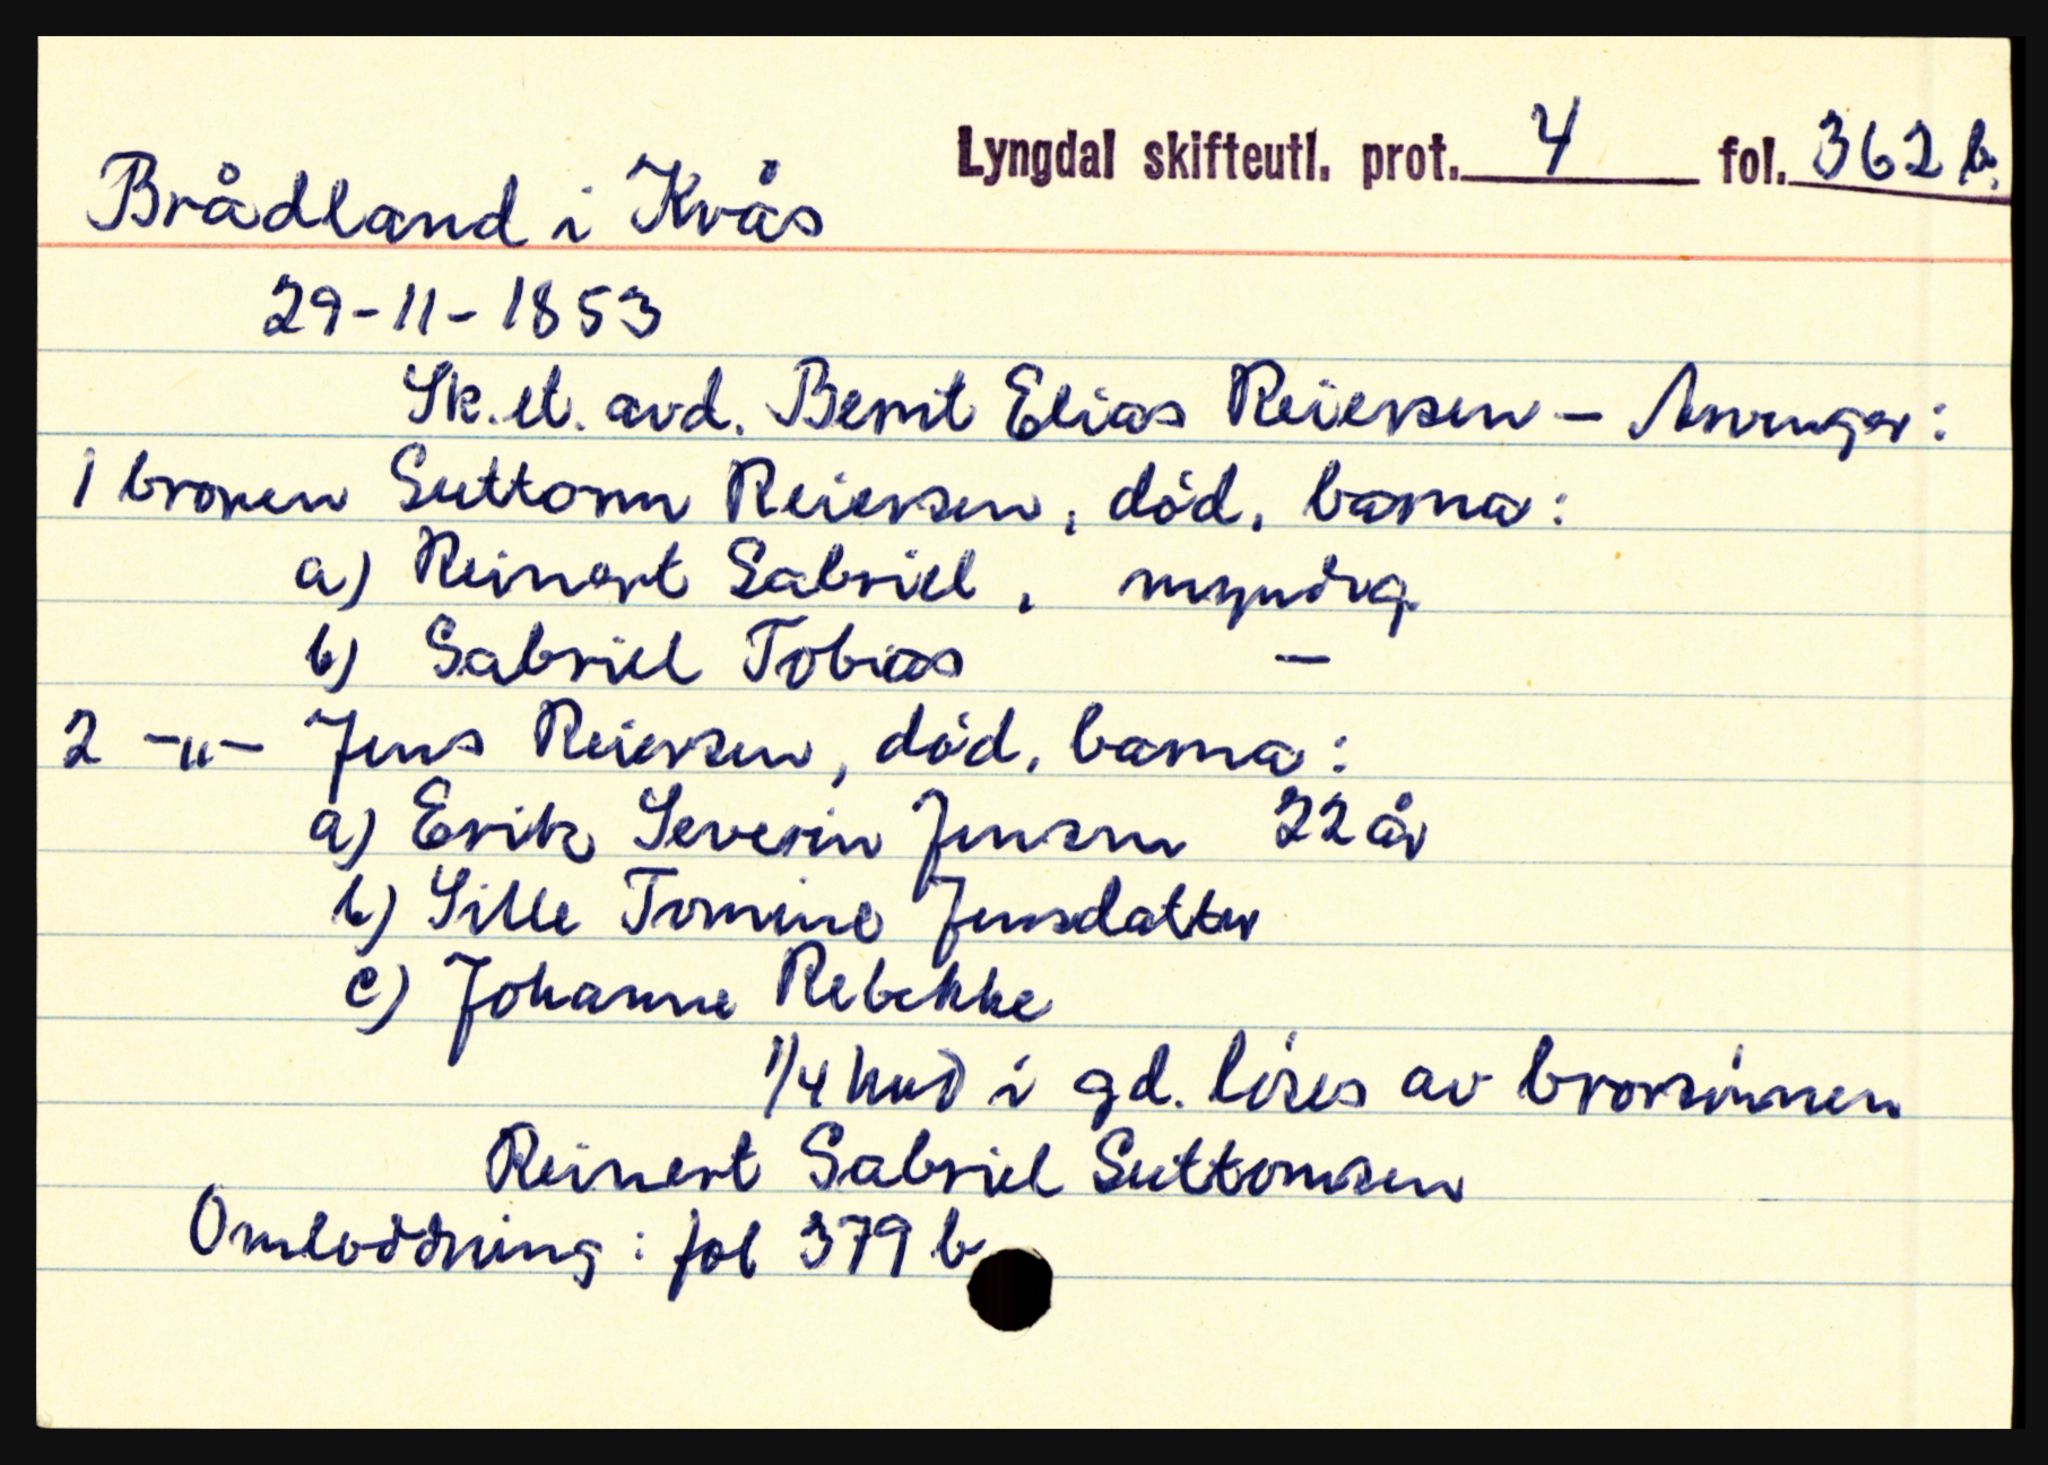 Lyngdal skifteutl. prot. 4 fol. 362 b.
Brådland i Kvås
29-11-1853
Sk. et. avd. Bernt Elias Reiersen – Arvinger:
1 broren Guttorm Reiersen, død, barna:
a) Reinert Gabriel, myndig
b) Gabriel Tobias –
2 -"- Jens Reiersen, død, barna:
a) Erik Severin Jensen 22 år
b) Sille Tomine Jensdatter
c) Johanne Rebekke
1/4 hud i gd. løses av brorsønnen
Reinert Gabriel Guttormsen
Omloddning: fol 379 b